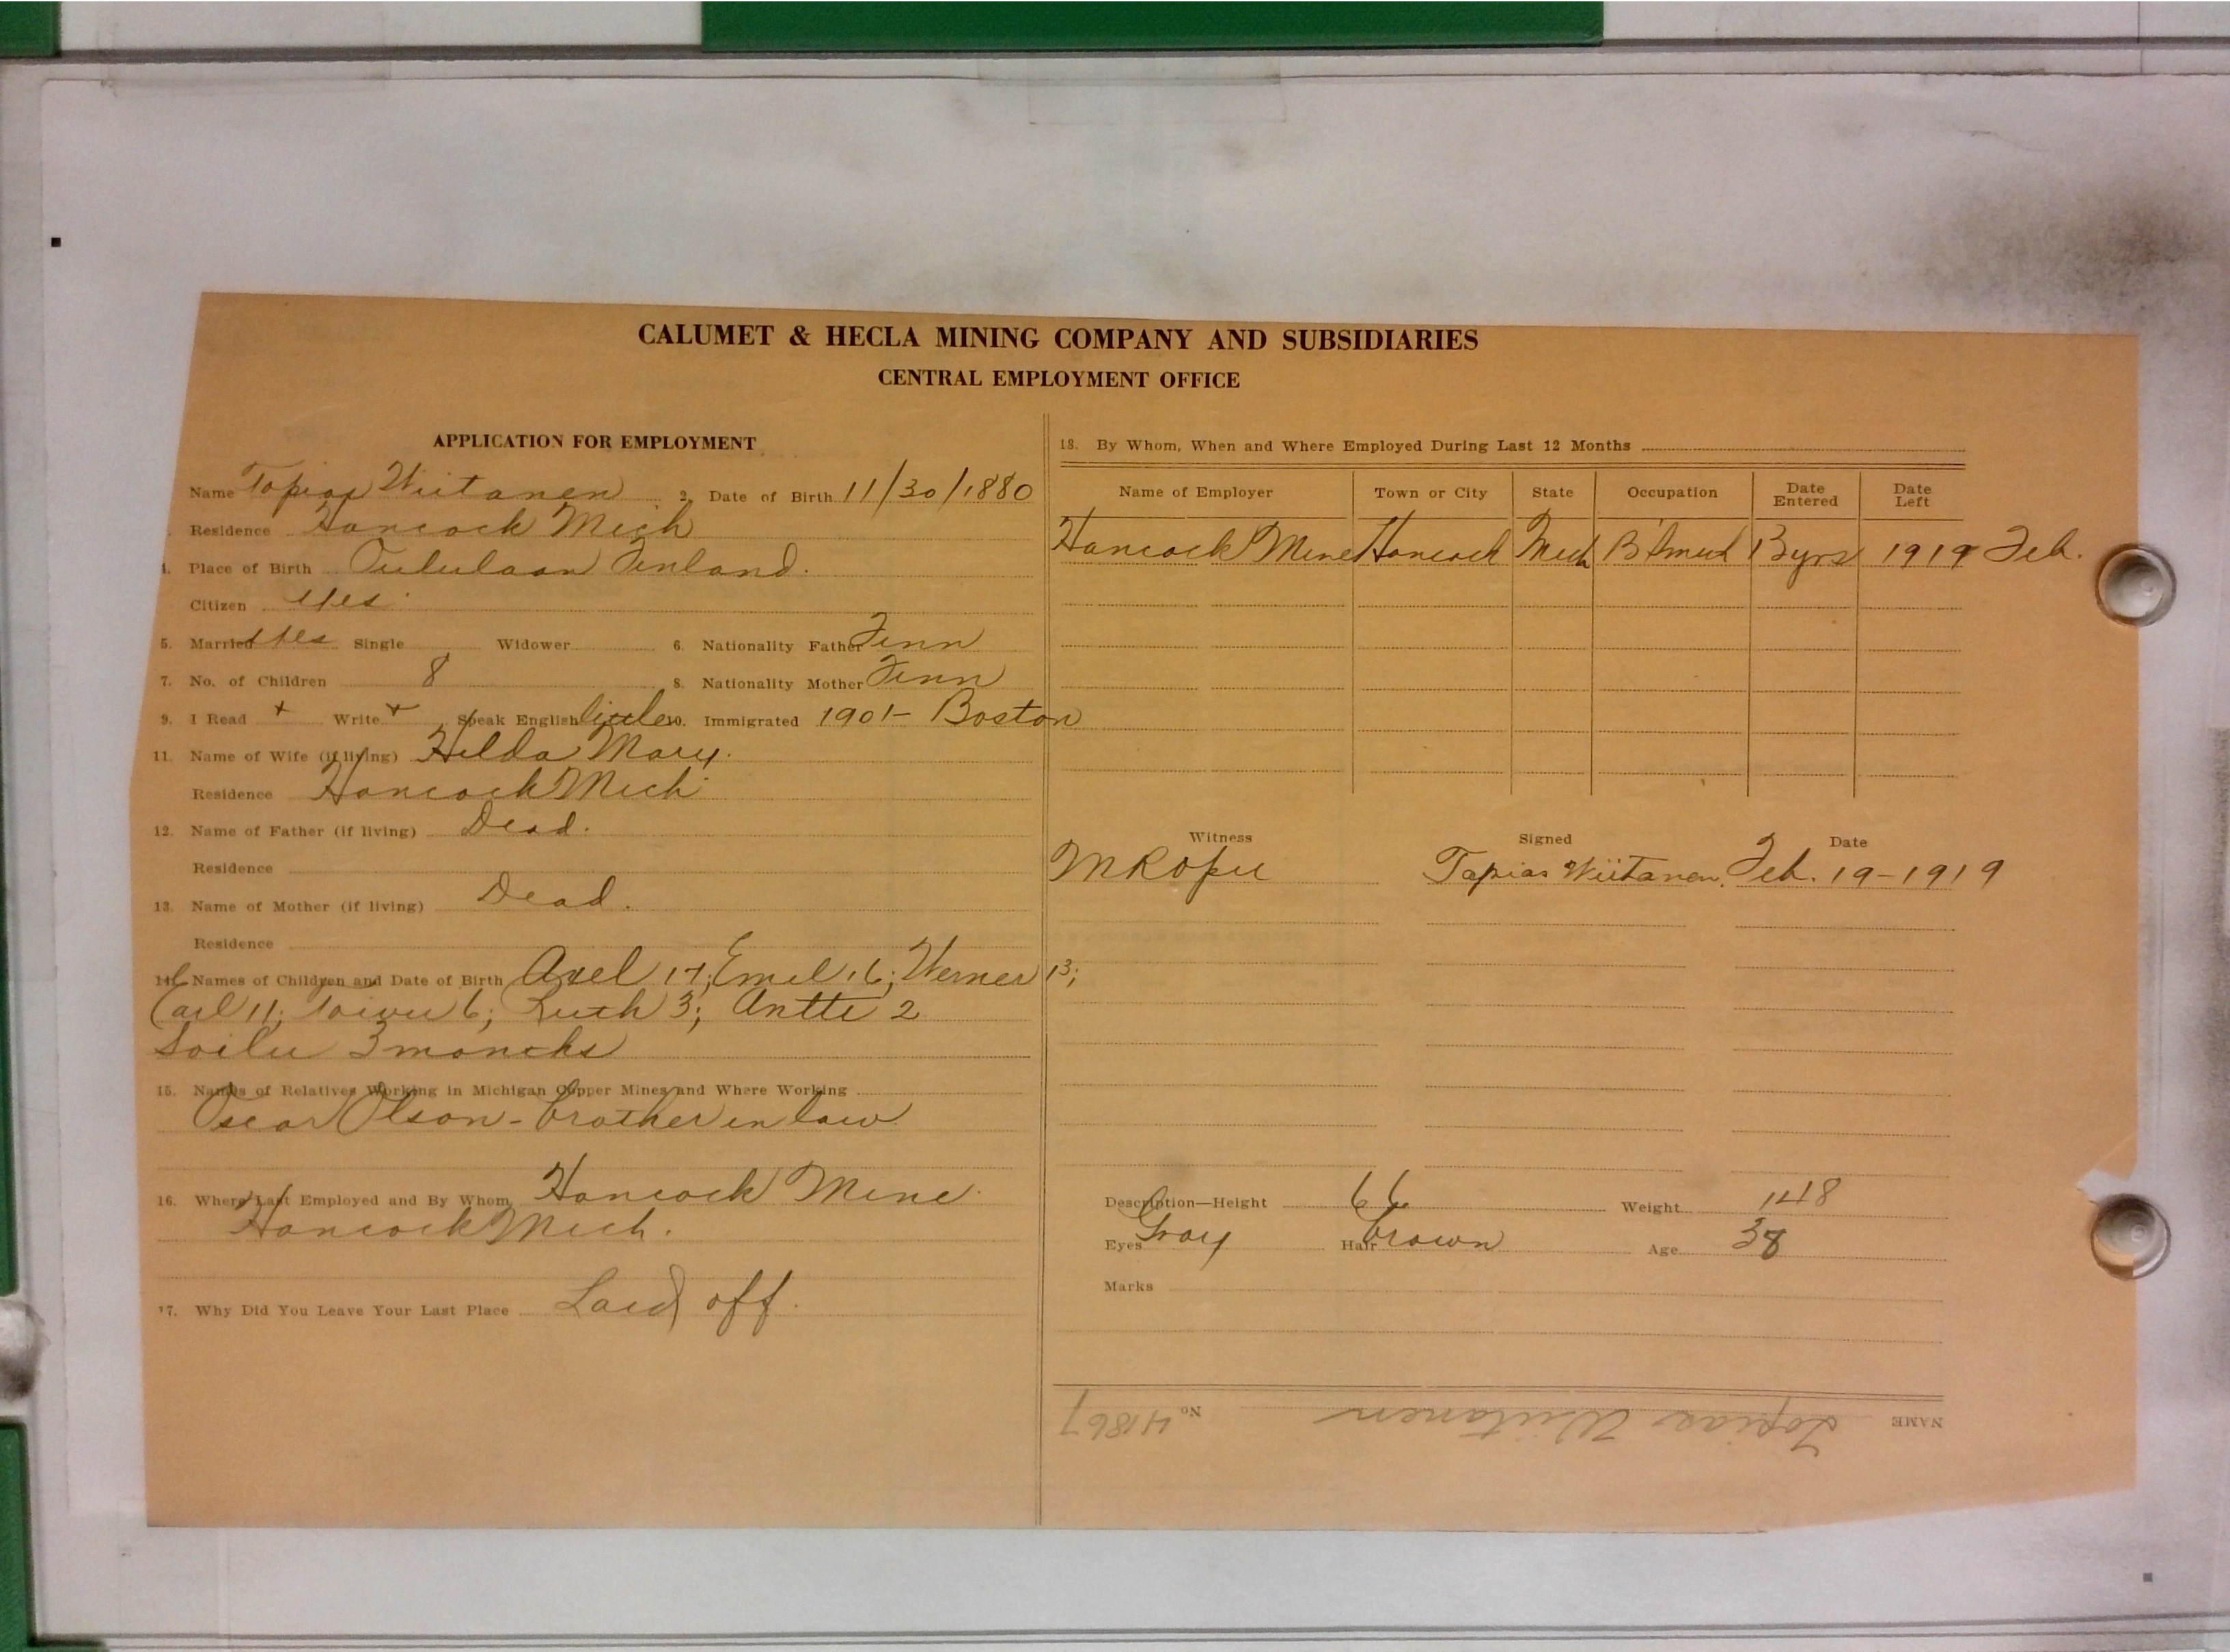 CALUMET & HECLA MINING COMPANY AND SUBSIDIARIES
CENTRAL EMPLOYMENT OFFICE
APPLICATION FOR EMPLOYMENT
Name Topias Wiitanen 2. Date of Birth 11/30/1880
Residence Hancock Mich
4. Place of Birth Finland.
Citizen Yes
5. Married Yes Single Widower 6. Nationality Father Finn
7. No. of Children 8 8. Nationality Mother Finn
9. I Read + Write + Speak English little 10. Immigrated 1901 - Boston
11. Name of Wife (if living) Hilda Mary.
Residence Hancock Mich
12. Name of Father (if living) Dead.
Residence
13. Name of Mother (if living) Dead.
Residence
14. Names of Children and Date of Birth Axel 17; Emil 16; Werner 13;
Carl 11; Toivu 6; Ruth 3; Antti 2
Soilu 3 months
15. Names of Relatives Working in Michigan Copper Mines and Where Working
Oscar Olson - brother in law
16. Where Last Employed and By Whom Hancock Mine
Hancock Mich.
17. Why Did You Leave Your Last Place Laid off.
18. By Whom, When and Where Employed During Last 12 Months
Name of Employer Town or City State Occupation Date Entered Date Left
Hancock Mine Hancock Mich B'smith 13 yrs 1919 Feb.
Witness Signed Date
M Ropu Tapias Wiitanen. Feb. 19 - 1919
Description—Height 66 Weight 148
Eyes Gray Hair brown Age 38
Marks
NAME Topias Wiitanen No 41867